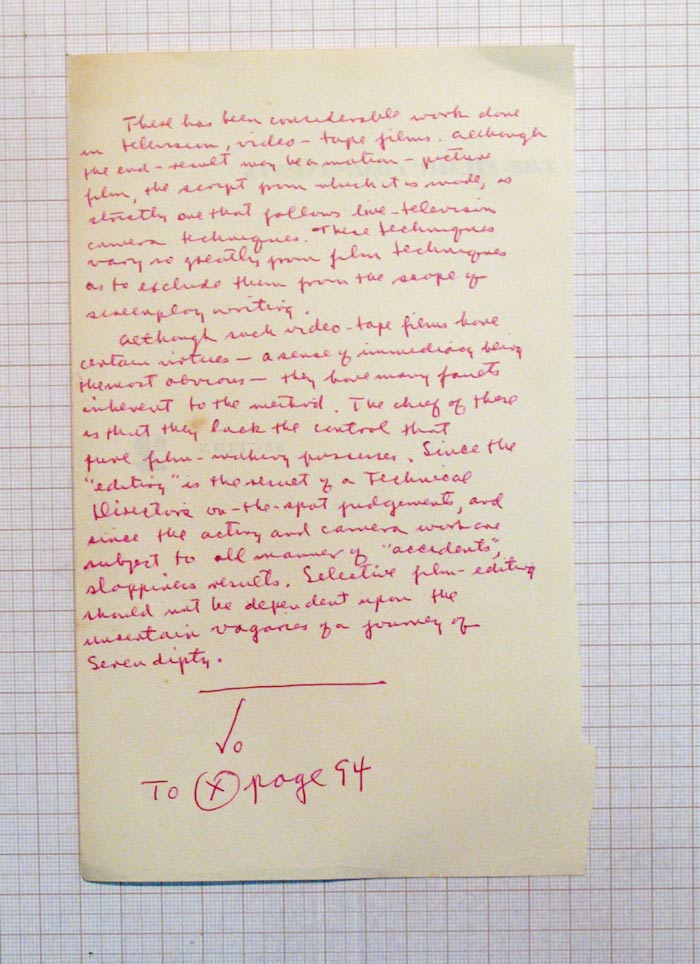 There has been considerable work done
in television, video-tape films. Although
the end-result may be a motion-picture
film, the script from which it is made, is
strictly one that follows live-television
camera techniques. These techniques
vary so greatly from film techniques
as to exclude them from the scope of
screenplay writing.
Although such video-tape films have
certain virtues — a sense of immediacy being
the most obvious — they have many faults
inherent to the method. The chief of these
is that they lack the control that
pure film-making possesses. Since the
"editing" is the result of a Technical
Director's on-the-spot judgements, and
since the acting and camera work are
subject to all manner of "accidents",
sloppiness results. Selective film-editing
should not be dependent upon the
uncertain vagaries of a journey of
Serendipty.
To X page 94
SECTION